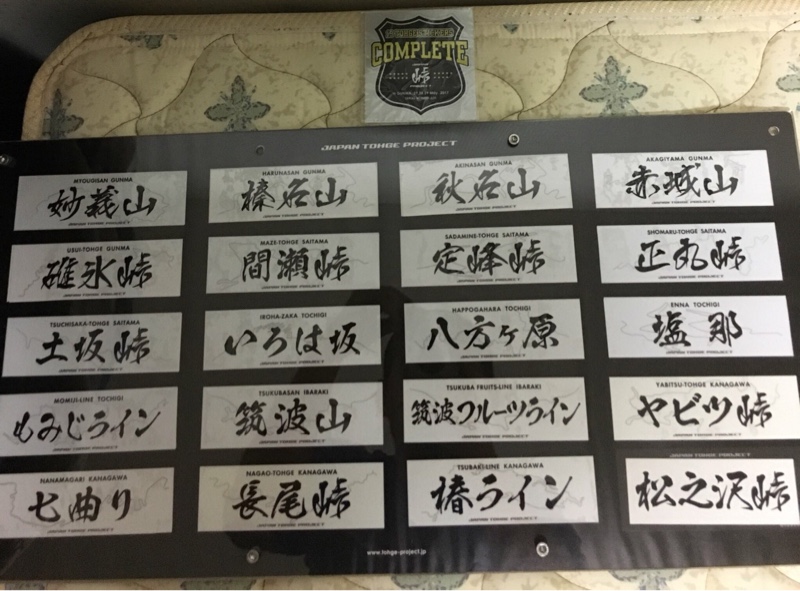 COMPLETE
峠
PROJECT
JAPAN TOHGE PROJECT
MYOUGISAN GUNMA
妙義山
JAPAN TOHGE PROJECT
HARUNASAN GUNMA
榛名山
JAPAN TOHGE PROJECT
AKINASAN GUNMA
秋名山
JAPAN TOHGE PROJECT
AKAGIYAMA GUNMA
赤城山
JAPAN TOHGE PROJECT
USUI-TOHGE GUNMA
碓氷峠
JAPAN TOHGE PROJECT
MAZE-TOHGE SAITAMA
間瀬峠
JAPAN TOHGE PROJECT
SADAMINE-TOHGE SAITAMA
定峰峠
JAPAN TOHGE PROJECT
SHOMARU-TOHGE SAITAMA
正丸峠
JAPAN TOHGE PROJECT
TSUCHISAKA-TOHGE SAITAMA
土坂峠
JAPAN TOHGE PROJECT
IROHA-ZAKA TOCHIGI
いろは坂
JAPAN TOHGE PROJECT
HAPPOGAHARA TOCHIGI
八方ヶ原
JAPAN TOHGE PROJECT
ENNA TOCHIGI
塩那
JAPAN TOHGE PROJECT
MOMIJI-LINE TOCHIGI
もみじライン
JAPAN TOHGE PROJECT
TSUKUBASAN IBARAKI
筑波山
JAPAN TOHGE PROJECT
TSUKUBA FRUITS-LINE IBARAKI
筑波フルーツライン
JAPAN TOHGE PROJECT
YABITSU-TOHGE KANAGAWA
ヤビツ峠
JAPAN TOHGE PROJECT
NANAMAGARI KANAGAWA
七曲り
JAPAN TOHGE PROJECT
NAGAO-TOHGE KANAGAWA
長尾峠
JAPAN TOHGE PROJECT
TSUBAKI-LINE KANAGAWA
椿ライン
JAPAN TOHGE PROJECT
JAPAN TOHGE PROJECT
松之沢峠
JAPAN TOHGE PROJECT
www.tohge-project.jp